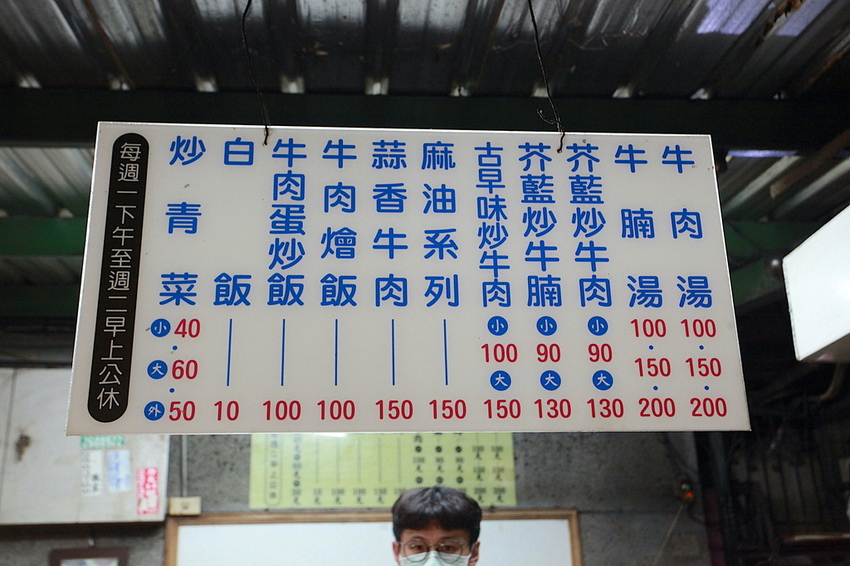 牛肉湯 100・150・200
牛腩湯 100・150・200
芥藍炒牛肉 小 90 大 130
芥藍炒牛腩 小 90 大 130
古早味炒牛肉 小 100 大 150
麻油系列 150
蒜香牛肉 150
牛肉燴飯 100
牛肉蛋炒飯 100
白飯 10
炒青菜 小 40・大 60・外 50
每週一下午至週二早上公休